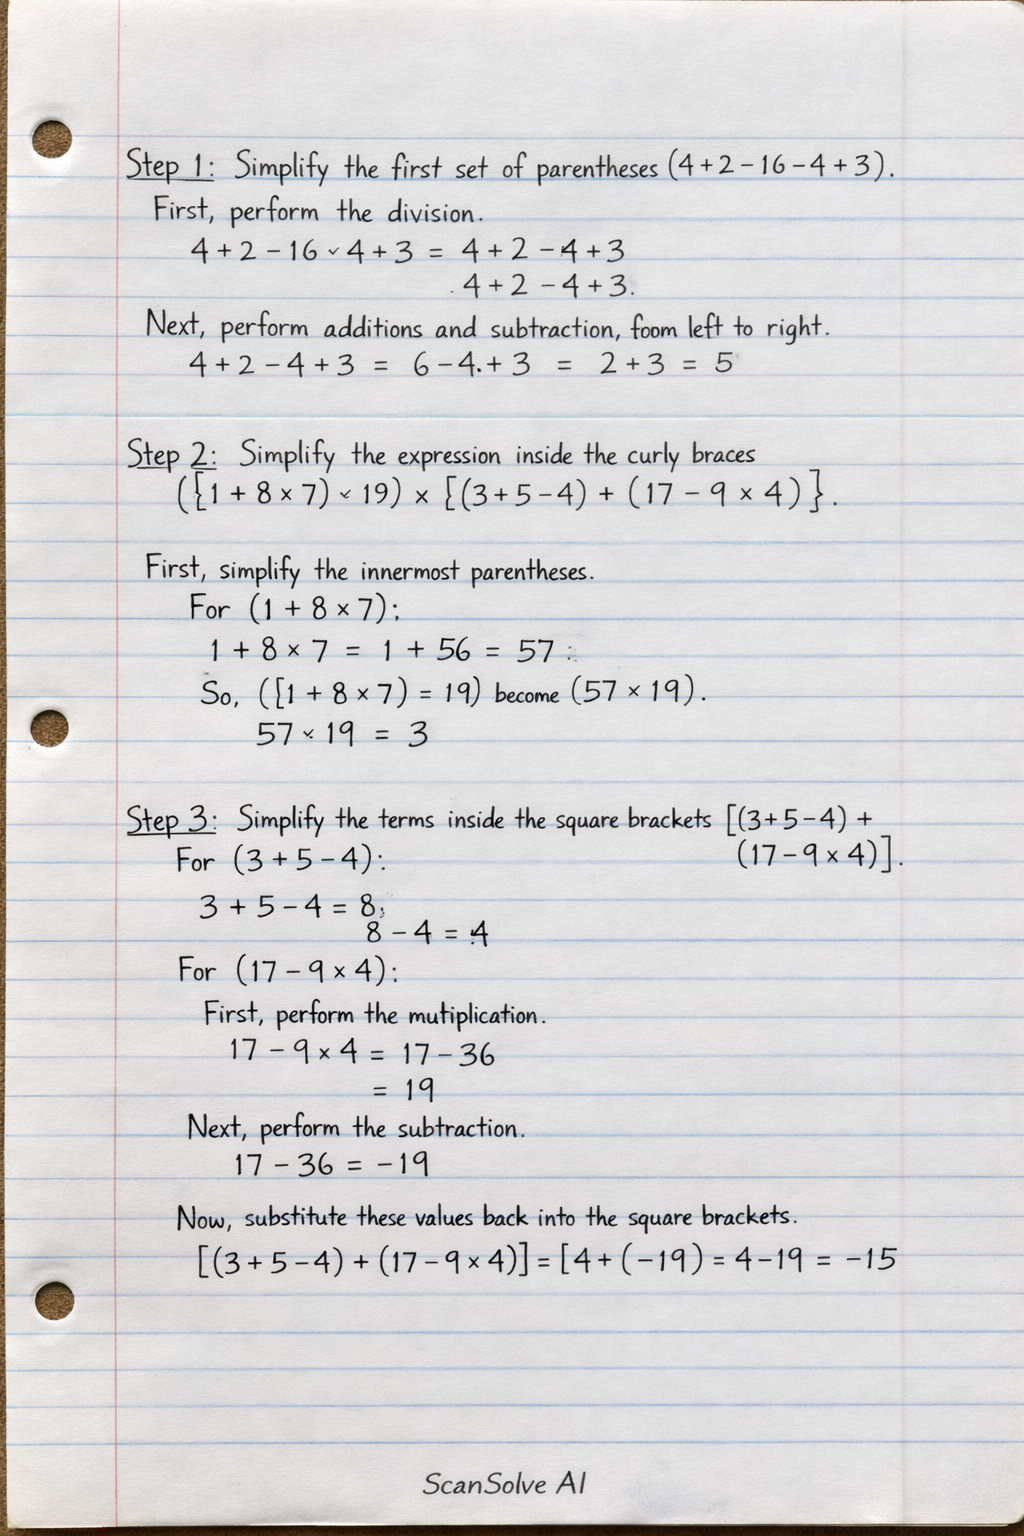 Step 1: Simplify the first set of parentheses (4+2-16-4+3).
First, perform the division.
4+2-16 ˅ 4+3 = 4+2-4+3
4+2-4+3.
Next, perform additions and subtraction, foom left to right.
4+2-4+3 = 6-4.+3 = 2+3 = 5
Step 2: Simplify the expression inside the curly braces
([1 + 8 × 7) ˅ 19) × {(3+5-4) + (17 - 9 × 4)}.
First, simplify the innermost parentheses.
For (1 + 8 × 7);
1 + 8 × 7 = 1 + 56 = 57 :
So, ([1 + 8 × 7) = 19) become (57 × 19).
57 × 19 = 3
Step 3: Simplify the terms inside the square brackets [(3+5-4) +
(17-9×4)].
For (3+5-4):
3 + 5 - 4 = 8;
8 - 4 = 4
For (17-9×4):
First, perform the mutiplication.
17 - 9 × 4 = 17 - 36
= 19
Next, perform the subtraction.
17 - 36 = -19
Now, substitute these values back into the square brackets.
[(3+5-4) + (17-9×4)] = [4+(-19) = 4-19 = -15
ScanSolve AI